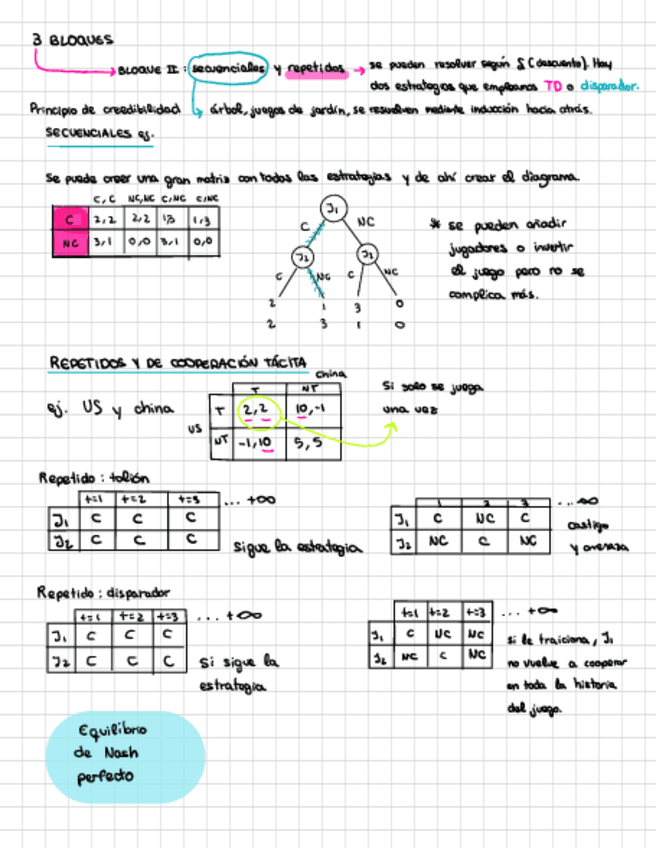 3 BLOQUES
BLOQUE II: secuenciales y repetidos → se pueden resolver según δ (descuento). Hay
dos estrategias que empleamos TD o disparador.
Principio de credibilidad árbol, juegos de jardín, se resuelven mediante inducción hacia atrás.
SECUENCIALES ej.
Se puede crear una gran matriz con todas las estrategias y de ahí crear el diagrama.
C,C NC,NC C,NC C,NC
C 2,2 2,2 1,3 1,3
NC 3,1 0,0 3,1 0,0
J1
C NC
J2 J2
C NC C NC
2 1 3 0
2 3 1 0
* se pueden añadir
jugadores o invertir
el juego pero no se
complica más.
REPETIDOS Y DE COOPERACIÓN TÁCITA
ej. US y china
china
T NT
US
T 2,2 10,-1
NT -1,10 5,5
Si solo se juega
una vez
Repetido: talión
t=1 t=2 t=3 ... +∞
J1 C C C
J2 C C C
sigue la estrategia
1 2 3 ... ∞
J1 C NC C
J2 NC C NC
castigo
y amenaza
Repetido: disparador
t=1 t=2 t=3 ... +∞
J1 C C C
J2 C C C
si sigue la
estrategia
t=1 t=2 t=3 ... +∞
J1 C NC NC
J2 NC C NC
si le traiciona, J1
no vuelve a cooperar
en toda la historia
del juego.
Equilibrio
de Nash
perfecto